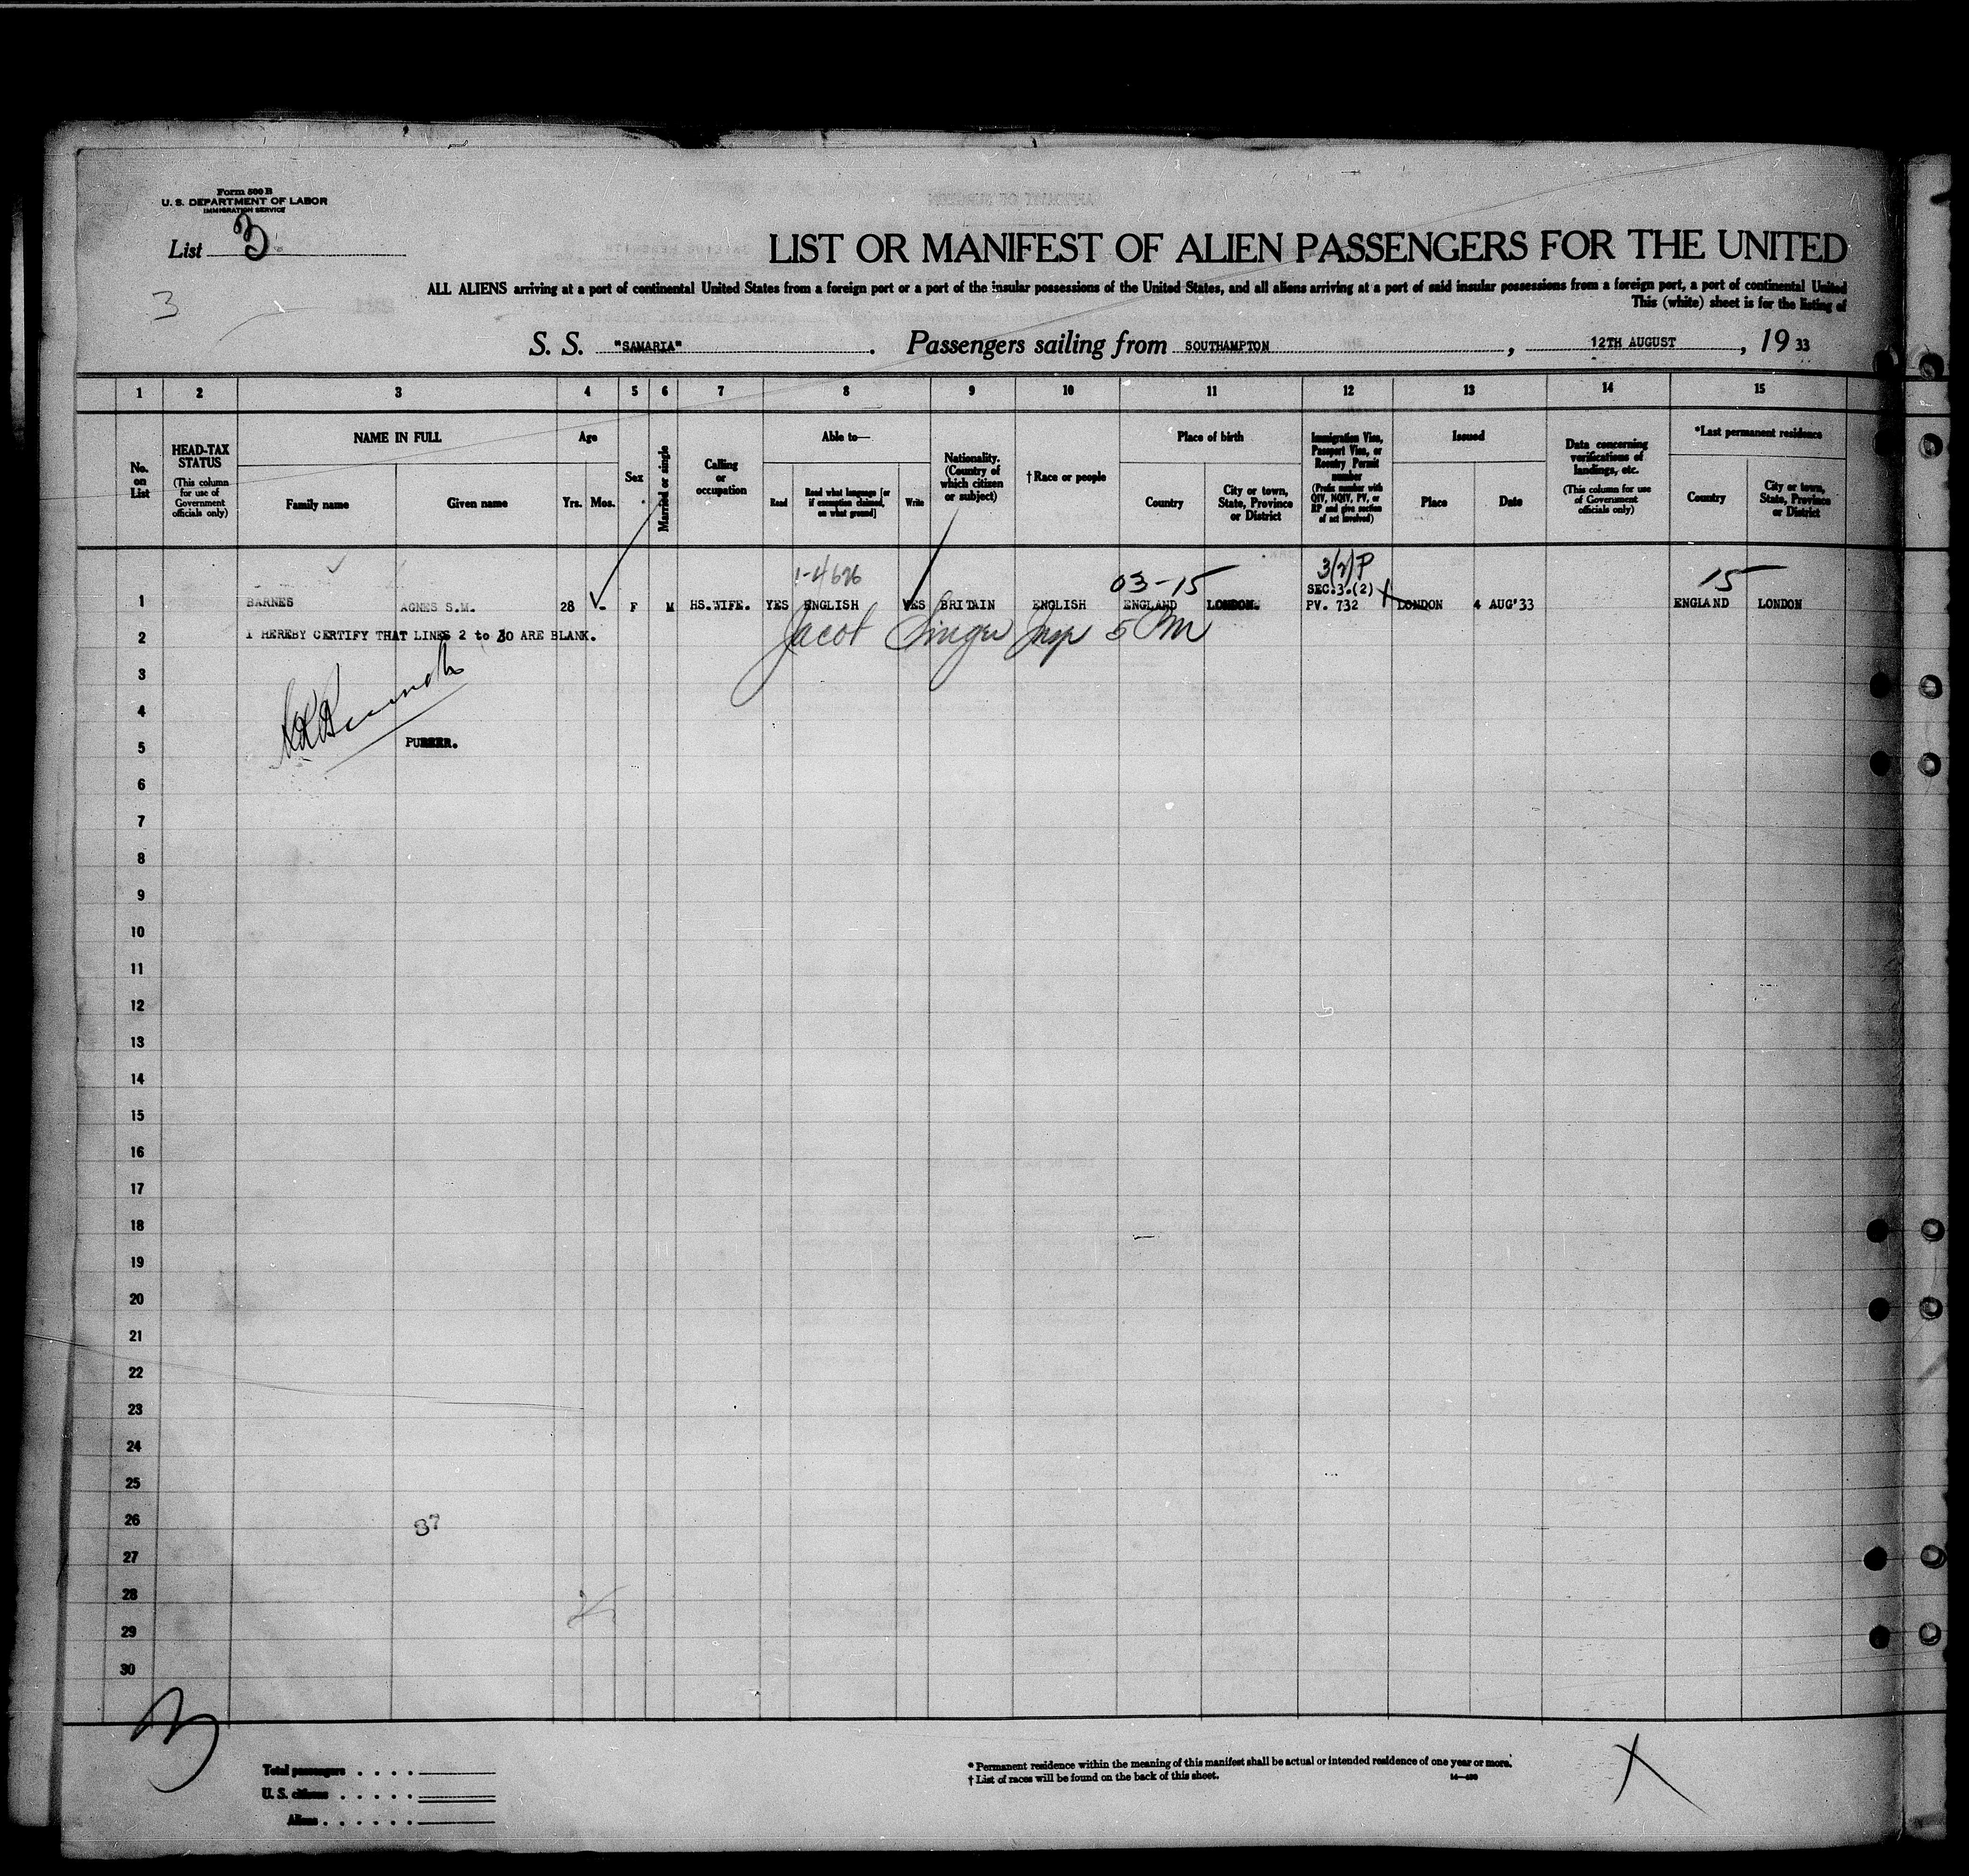 Form 500 B
U. S. DEPARTMENT OF LABOR
IMMIGRATION SERVICE
List 3
3
LIST OR MANIFEST OF ALIEN PASSENGERS FOR THE UNITED
ALL ALIENS arriving at a port of continental United States from a foreign port or a port of the insular possessions of the United States, and all aliens arriving at a port of said insular possessions from a foreign port, a port of continental United
This (white) sheet is for the listing of
S. S. "SAMARIA". Passengers sailing from SOUTHAMPTON, 12TH AUGUST, 19 33
1 2 3 4 5 6 7 8 9 10 11 12 13 14 15
No. on List
HEAD-TAX STATUS
(This column for use of Government officials only)
NAME IN FULL
Family name
Given name
Age
Yrs. Mos.
Sex
Married or single
Calling or occupation
Able to—
Read
Read what language [or if exemption claimed, on what ground]
Write
Nationality. (Country of which citizen or subject)
†Race or people
Place of birth
Country
City or town, State, Province or District
Immigration Visa, Passport Visa, or Reentry Permit number
(Prefix number with QIV, NQIV, PV, or RP and give section of act involved)
Issued
Place
Date
Data concerning verifications of landings, etc.
(This column for use of Government officials only)
*Last permanent residence
Country
City or town, State, Province or District
3(2)P
03-15
15
SEC.3.(2)
1 BARNES AGNES S.M. 28 - F M HS.WIFE. YES ENGLISH YES BRITAIN ENGLISH ENGLAND LONDON. PV. 732 LONDON 4 AUG'33 ENGLAND LONDON
2 I HEREBY CERTIFY THAT LINES 2 to 30 ARE BLANK.
Jacob Singer Insp
3
4
5 PURSER.
6
7
8
9
10
11
12
13
14
15
16
17
18
19
20
21
22
23
24
25
26
37
27
28
29
30
3
Total passengers . . . .
U. S. citizens . . . . .
Aliens . . . . . .
* Permanent residence within the meaning of this manifest shall be actual or intended residence of one year or more.
† List of races will be found on the back of this sheet.
X